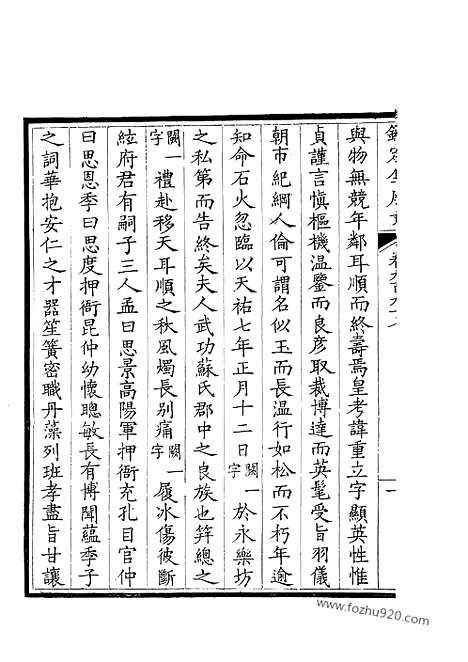 與物無競年鄰耳順而終壽焉皇考諱重立字顯英性惟
貞謹言愼樞機溫鑒而良彥取裁博達而英髦受旨羽儀
朝市紀綱人倫可謂名似玉而長溫行如松而不朽年逾
知命石火忽臨以天祐七年正月十二日闕一字於永樂坊
之私第而告終矣夫人武功蘇氏郡中之良族也笄總之
闕一字禮赴移天耳順之秋風燭長別痛闕一字履冰傷彼斷
絃府君有嗣子三人孟曰思景高陽軍押衙充孔目官仲
曰思恩季曰思度押衙昆仲幼懷聰敏長有博聞蘊季子
之詞華抱安仁之才器笙簧密職丹藻列班孝盡旨甘讓
www.fozhu920.com